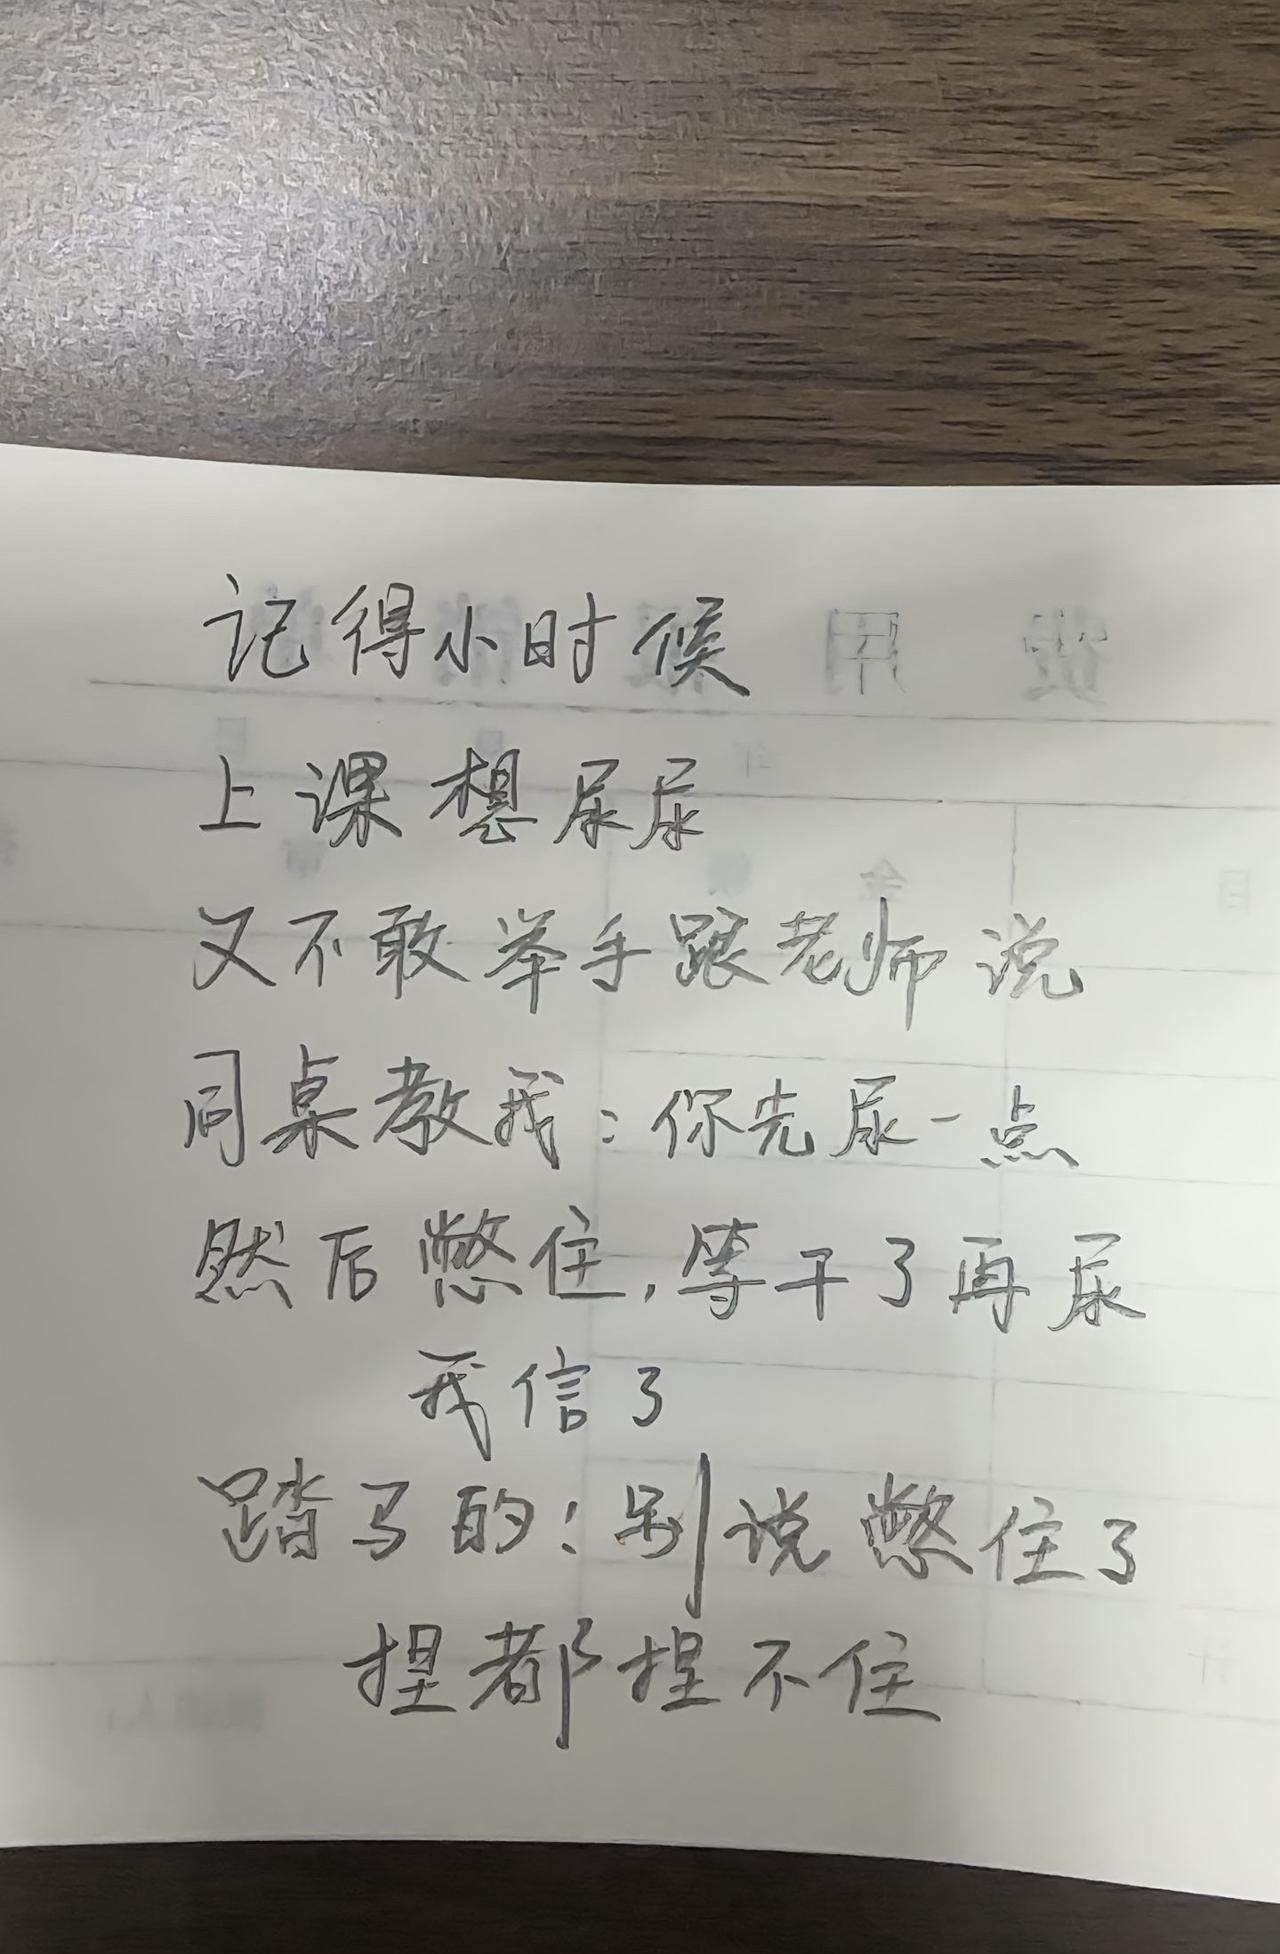 记得小时候
上课想尿尿
又不敢举手跟老师说
同桌教我：你先尿一点
然后憋住，等干了再尿
我信了
踏马的：别说憋住了
捏都捏不住